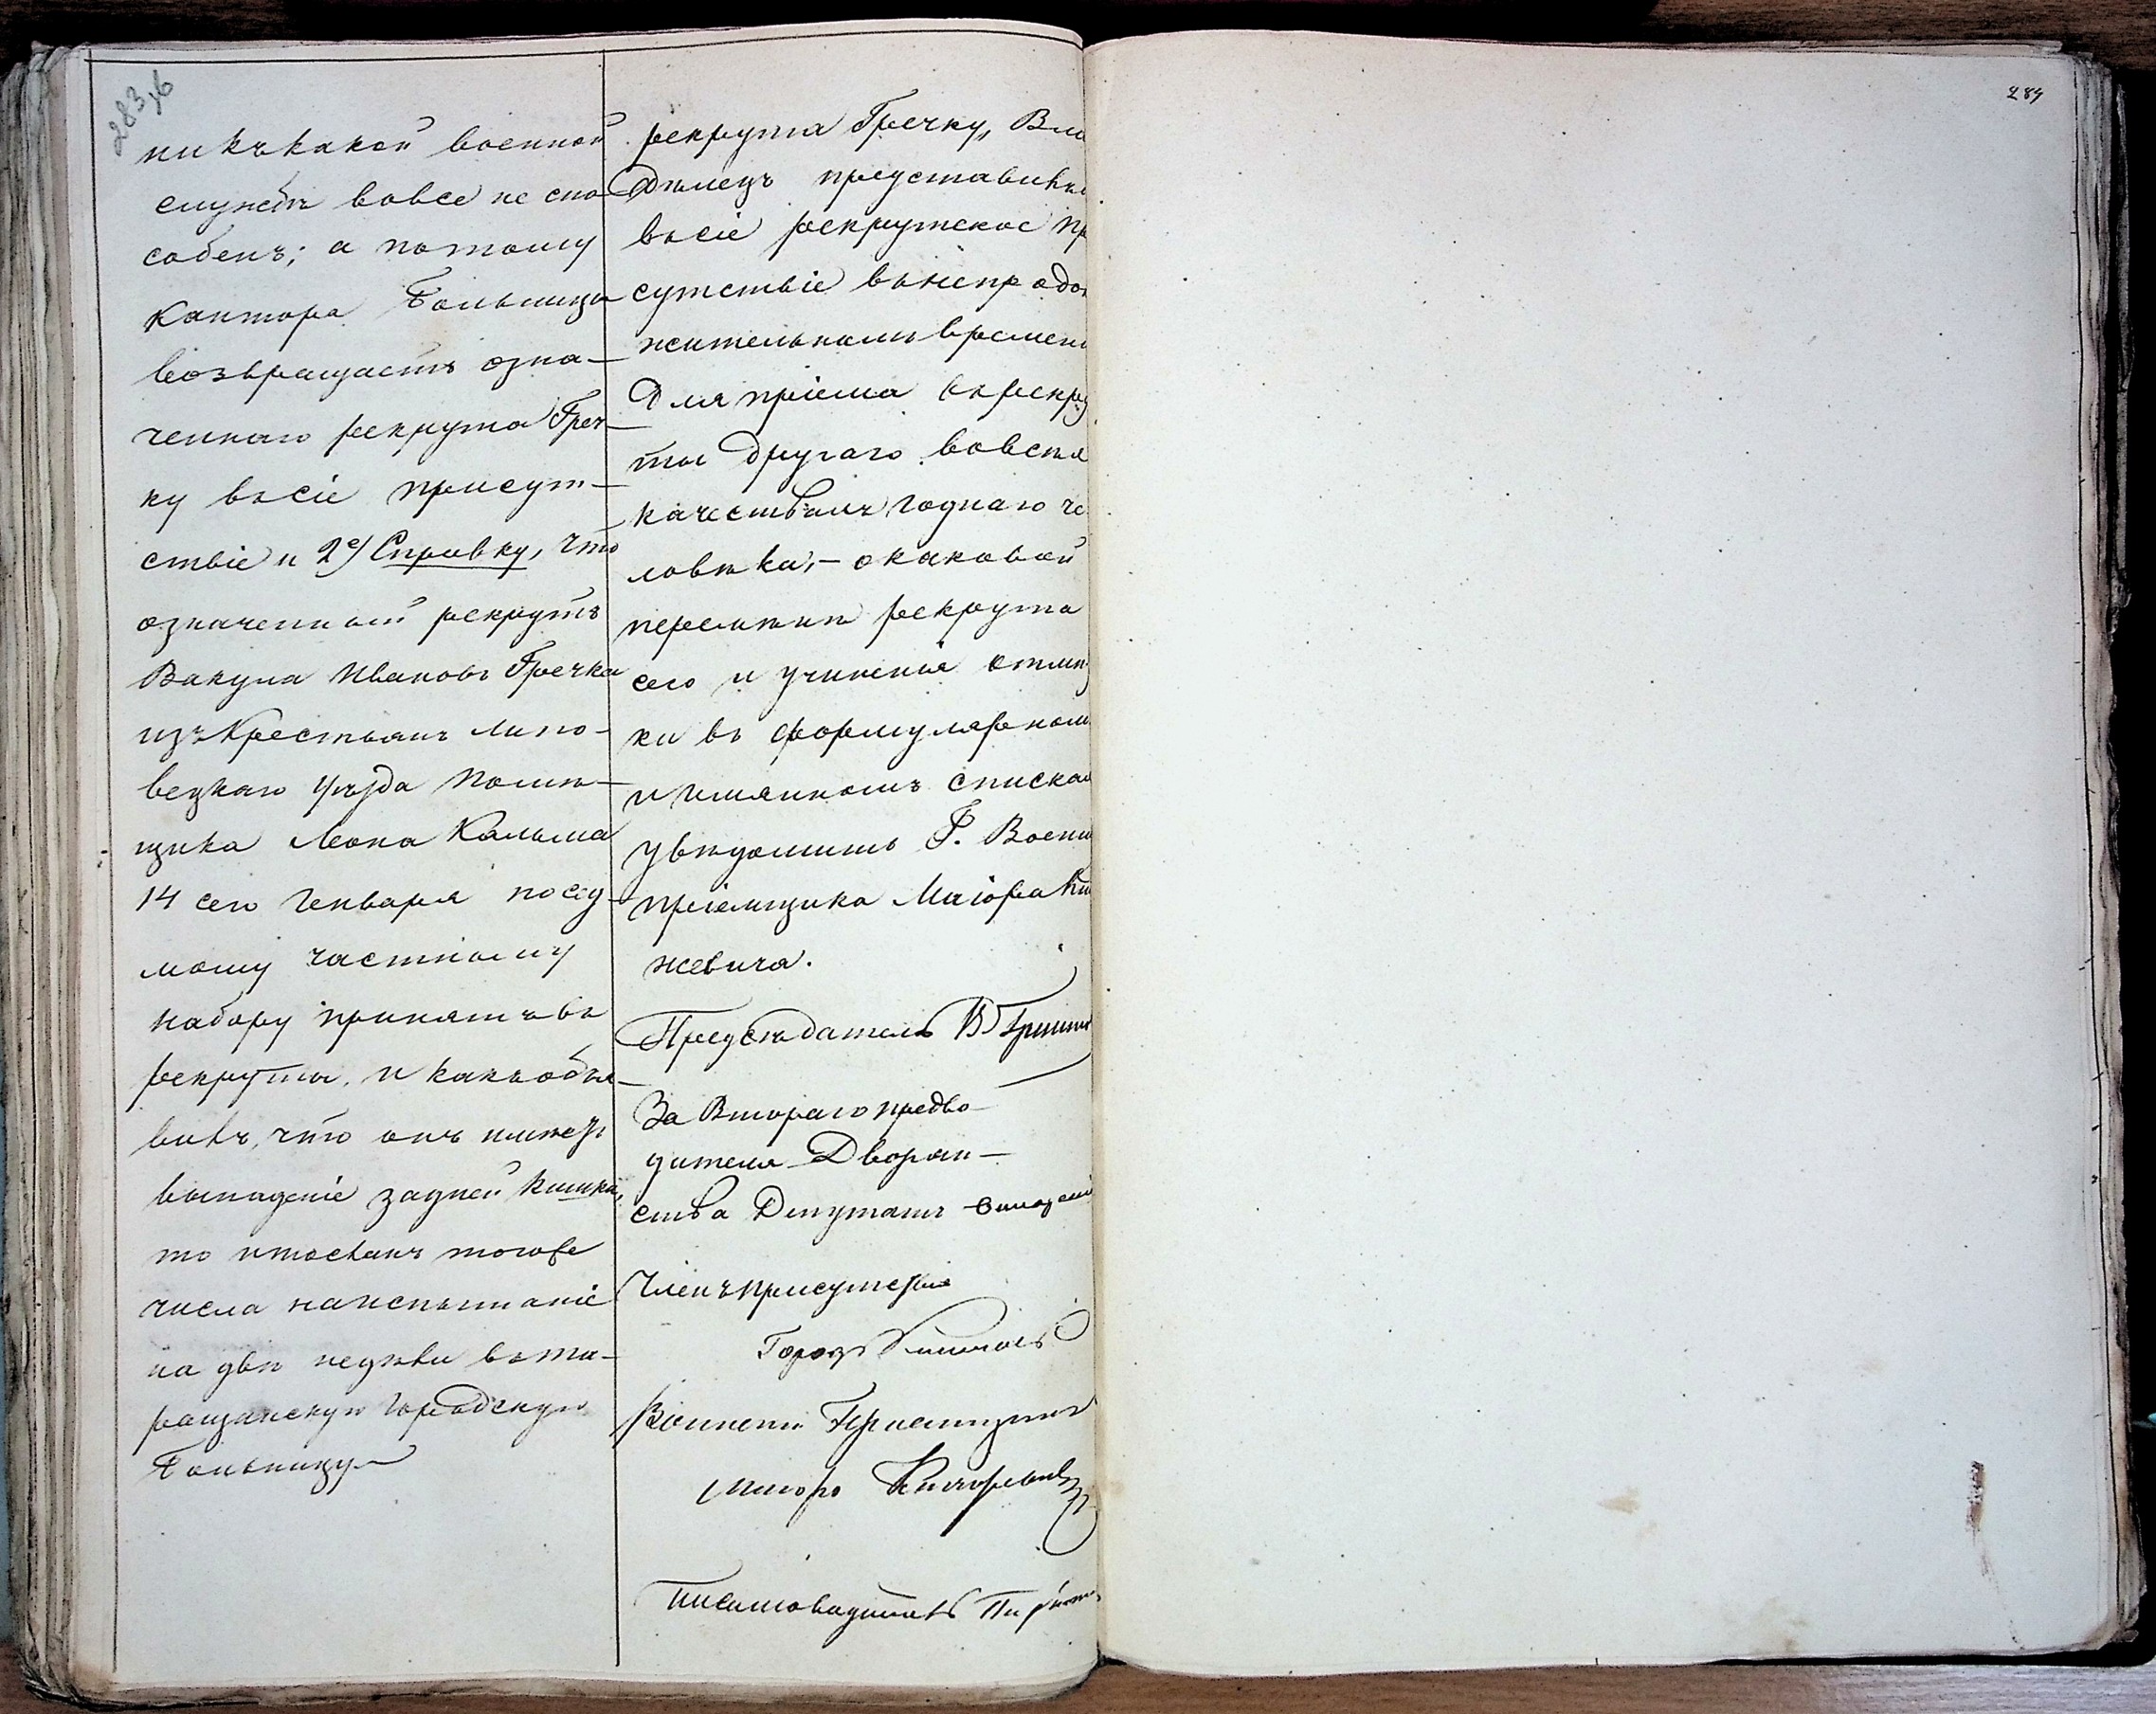 283 об
ни къ какой военной
службѣ вовсе не спо-
собенъ; а потому
Контора Больницы
возвращаетъ озна-
ченнаго рекрута Греч-
ку въ сіе присут-
ствіе и 2е) Справку, что
означенный рекрутъ
Вакула Ивановъ Гречка
изъ Крестьянъ Липо-
вецкаго уѣзда Помѣ-
щика Леона Кальма
14 сего Генваря по сед-
мому частному
набору принятъ въ
рекруты, и какъ объя-
вилъ, что онъ имѣетъ
выпаденіе задней кишки,
то и посланъ того же
числа на испытаніе
на двѣ недѣли въ та-
ращанскую городскую
Больницу
рекрута Гречку, Вла
дѣлецъ представилъ
въ сіе рекрутское пр
сутствіе въ непродол
жительномъ времени
Для пріема въ рекру
ты другаго во всѣхъ
качествахъ годнаго че
ловѣка, – о каковой
перемѣнѣ рекрута
сего и учиненія отмѣт
ки въ формулярном
и имянномъ списках
увѣдомить Г. Воени
пріемщика Маіора
жевича.
Предсѣдатель В
За Втораго предво-
дителя Дворян-
ства Депутатъ
Членъ присутствія
Город
Военный Пріемщикъ
Маіоръ
Письмоводитель
284